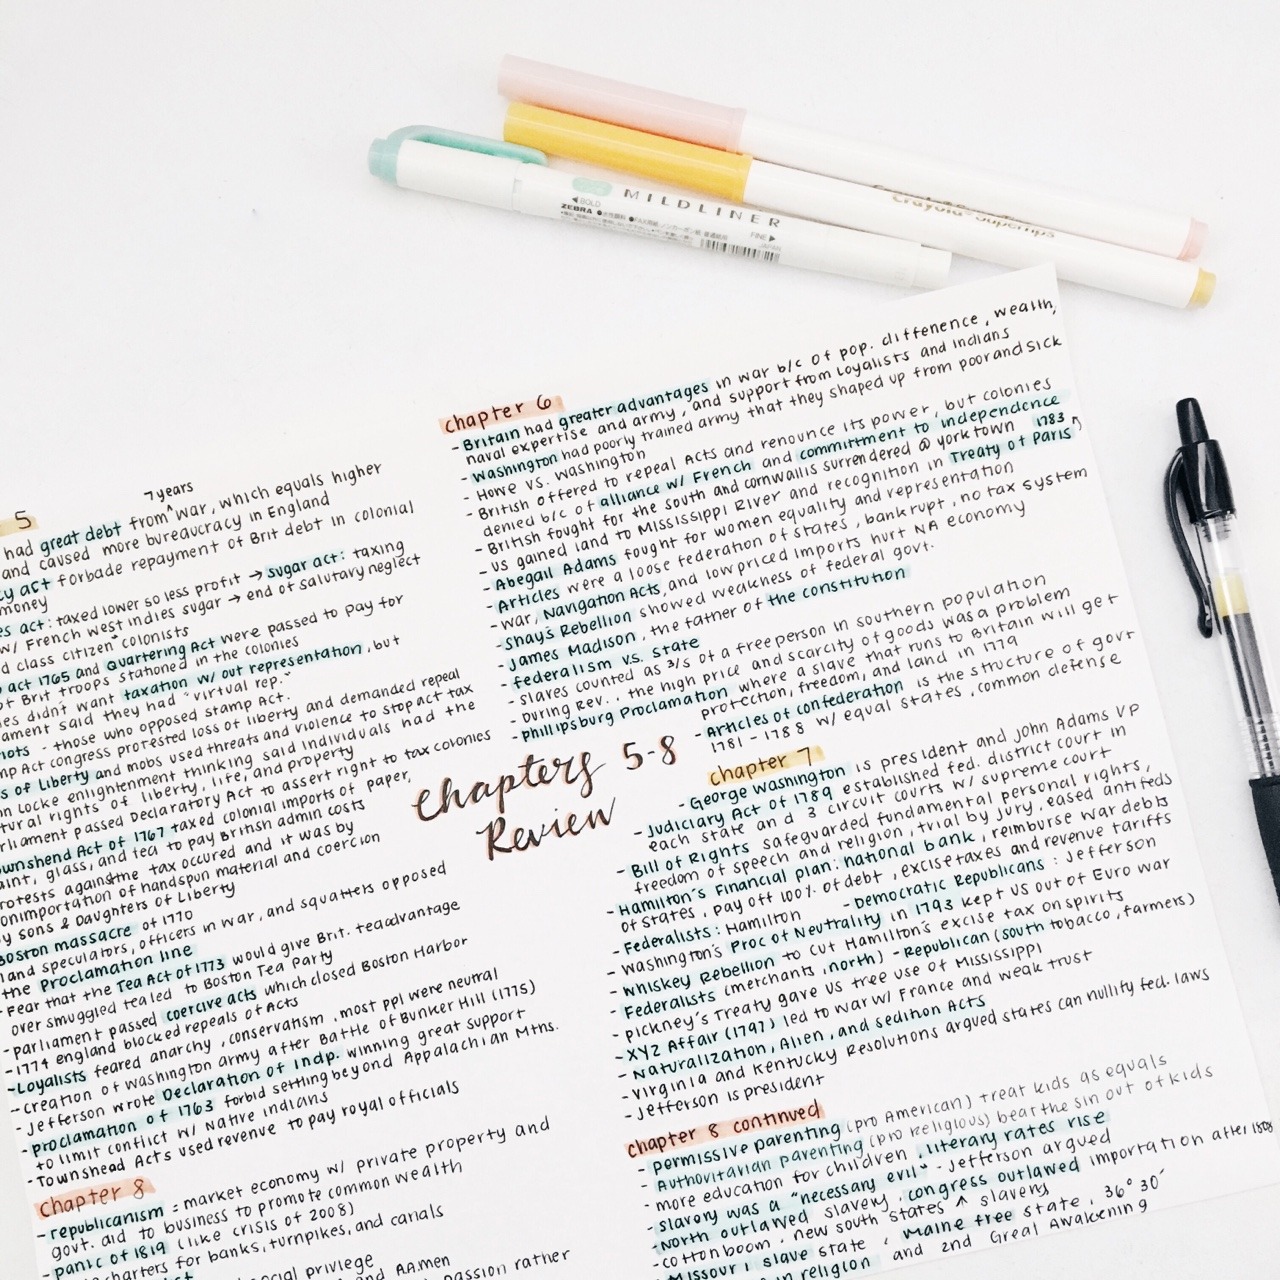 MILDLINER
BOLD
ZEBRA
FINE
Crayola Supertips
chapter 6
- Britain had greater advantages in war b/c of pop. diffenence, wealth,
naval expertise and army, and support from Loyalists and Indians
- Washington had poorly trained army that they shaped up from poor and sick
- Howe vs. Washington
- British offered to repeal Acts and renounce its power, but colonies
denied b/c of alliance w/ French and committment to independence
- British fought for the south and cornwallis surrendered @ yorktown 1783
- US gained land to Mississippi River and recognition in Treaty of Paris
- Abegail Adams fought for women equality and representation
- Articles were a loose federation of states, bankrupt, no tax system
- war, Navigation Acts, and low priced imports hurt NA economy
- Shay's Rebellion showed weakness of federal govt.
- James Madison, the father of the constitution
- federalism v.s. state
- slaves counted as 3/5 of a free person in southern population
- During Rev., the high price and scarcity of goods was a problem
- phillipsburg Proclamation where a slave that runs to Britain will get
protection, freedom, and land in 1779
- Articles of confederation is the structure of govt
1781 - 1788 w/ equal states, common defense
5
7 years
had great debt from ^ war, which equals higher
and caused more bureaucracy in England
cy act forbade repayment of Brit debt in colonial
money
es act: taxed lower so less profit → sugar act: taxing
w/ French west indies sugar → end of salutary neglect
d class citizen" colonists
act 1765 and quartering Act were passed to pay for
of Brit troops stationed in the colonies
es didn't want taxation w/out representation, but
ament said they had "virtual rep."
iots - those who opposed stamp Act.
mp Act congress protested loss of liberty and demanded repeal
s of Liberty and mobs used threats and violence to stop act tax
n Locke enlightenment thinking said individuals had the
tural rights of liberty, life, and property
rliament passed Declaratory Act to assert right to tax colonies
ownshend Act of 1767 taxed colonial imports of paper,
aint, glass, and tea to pay British admin costs
rotests against the tax occured and it was by
onimportation of handspun material and coercion
y sons & Daughters of Liberty
Boston massacre of 1770
land speculators, officers in war, and squatters opposed
the Proclamation line
- Fear that the Tea Act of 1773 would give Brit. tea advantage
over smuggled tea led to Boston Tea Party
- parliament passed coercive acts which closed Boston Harbor
- 1774 england blocked repeals of Acts
- Loyalists feared anarchy, conservatism, most ppl were neutral
- creation of Washington army after Battle of Bunker Hill (1775)
- Jefferson wrote Declaration of Indp. winning great support
- proclamation of 1763 forbid settling beyond Appalachian Mtns.
to limit conflict w/ Native indians
- Townshead Acts used revenue to pay royal officials
Chapters 5-8
Review
chapter 7
- George Washington is president and John Adams VP
- Judiciary Act of 1789 established fed. district court in
each state and 3 circuit courts w/ supreme court
- Bill of Rights safeguarded fundamental personal rights,
freedom of speech and religion, trial by jury, eased antifeds
- Hamilton's Financial plan: national bank, reimburse war debts
of states, pay off 100% of debt, excise taxes and revenue tariffs
- Federalists: Hamilton - Democratic Republicans: Jefferson
- Washington's Proc of Neutrality in 1793 kept US out of Euro war
- Whiskey Rebellion to cut Hamilton's excise tax on spirits
- Federalists (merchants, north) - Republican (south tobacco, farmers)
- pickney's Treaty gave US free use of Mississippi
- XYZ Affair (1797) led to war w/ France and weak trust
- Naturalization, Alien, and sedition Acts
- Virginia and Kentucky Resolutions argued states can nullify fed. laws
- Jefferson is president
chapter 8
- republicanism = market economy w/ private property and
govt. aid to business to promote common wealth
- panic of 1819 (like crisis of 2008)
charters for banks, turnpikes, and canals
privlege
and AA men
passion rather
chapter 8 continued
- permissive parenting (pro American) treat kids as equals
- Authoritarian parenting (pro religious) bear the sin out of kids
- more education for children, literary rates rise
- slavery was a "necessary evil" - Jefferson argued
- North outlawed slavery, congress outlawed importation after 1808
- cotton boom, new south states ↑ slavery
- Missouri slave state, maine free state, 36° 30'
in religion and 2nd Great Awakening